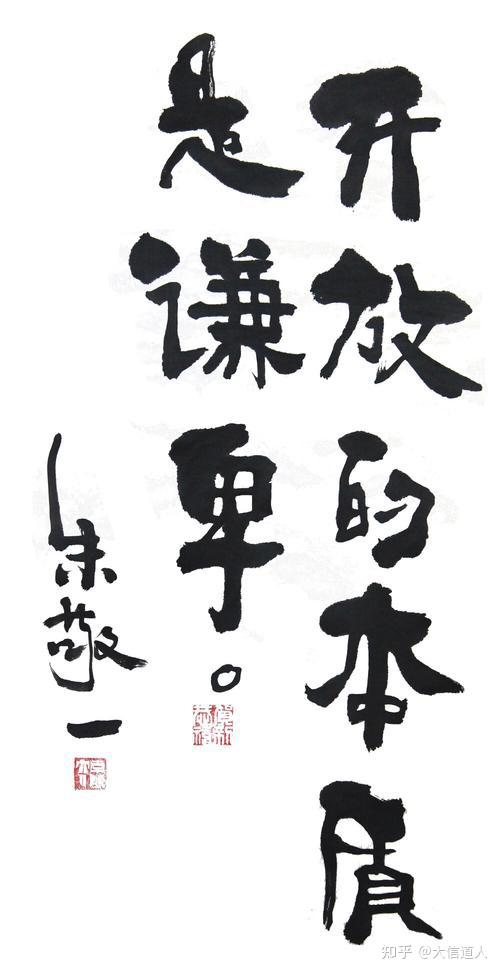 开放的本质
是谦卑。
朱敬一
知乎 @大信道人